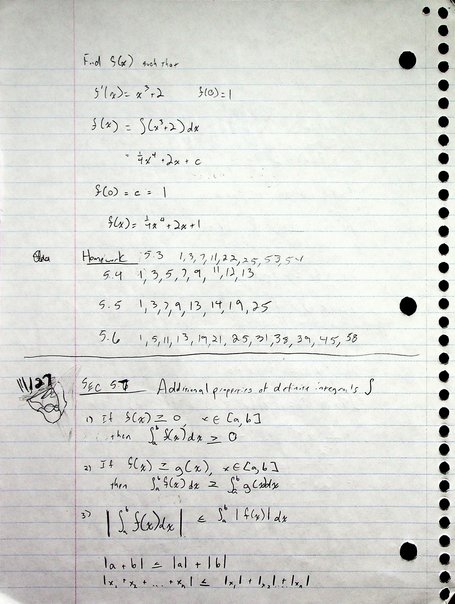 Find f(x) such that
f'(x) = x³ + 2 f(0) = 1
f(x) = ∫(x³+2)dx
= ¼x⁴ + 2x + c
f(0) = c = 1
f(x) = ¼x⁴ + 2x + 1
Homework : 5.3 1, 3, 7, 11, 22, 25, 53, 54
5.4 1, 3, 5, 7, 9, 11, 12, 13
5.5 1, 3, 7, 9, 13, 14, 19, 25
5.6 1, 5, 11, 13, 19, 21, 25, 31, 38, 39, 45, 58
11/27 SEC 5.7 Additional properties of definite integrals ∫
1) If f(x) ≥ 0 x ∈ [a, b]
then ∫ₐᵇ f(x) dx ≥ 0
2) If f(x) ≥ g(x), x ∈ [a, b]
then ∫ₐᵇ f(x) dx ≥ ∫ₐᵇ g(x)dx
3) |∫ₐᵇ f(x)dx| ≤ ∫ₐᵇ |f(x)| dx
|a + b| ≤ |a| + |b|
|x₁ + x₂ + ... + xₙ| ≤ |x₁| + |x₂| + |xₙ|